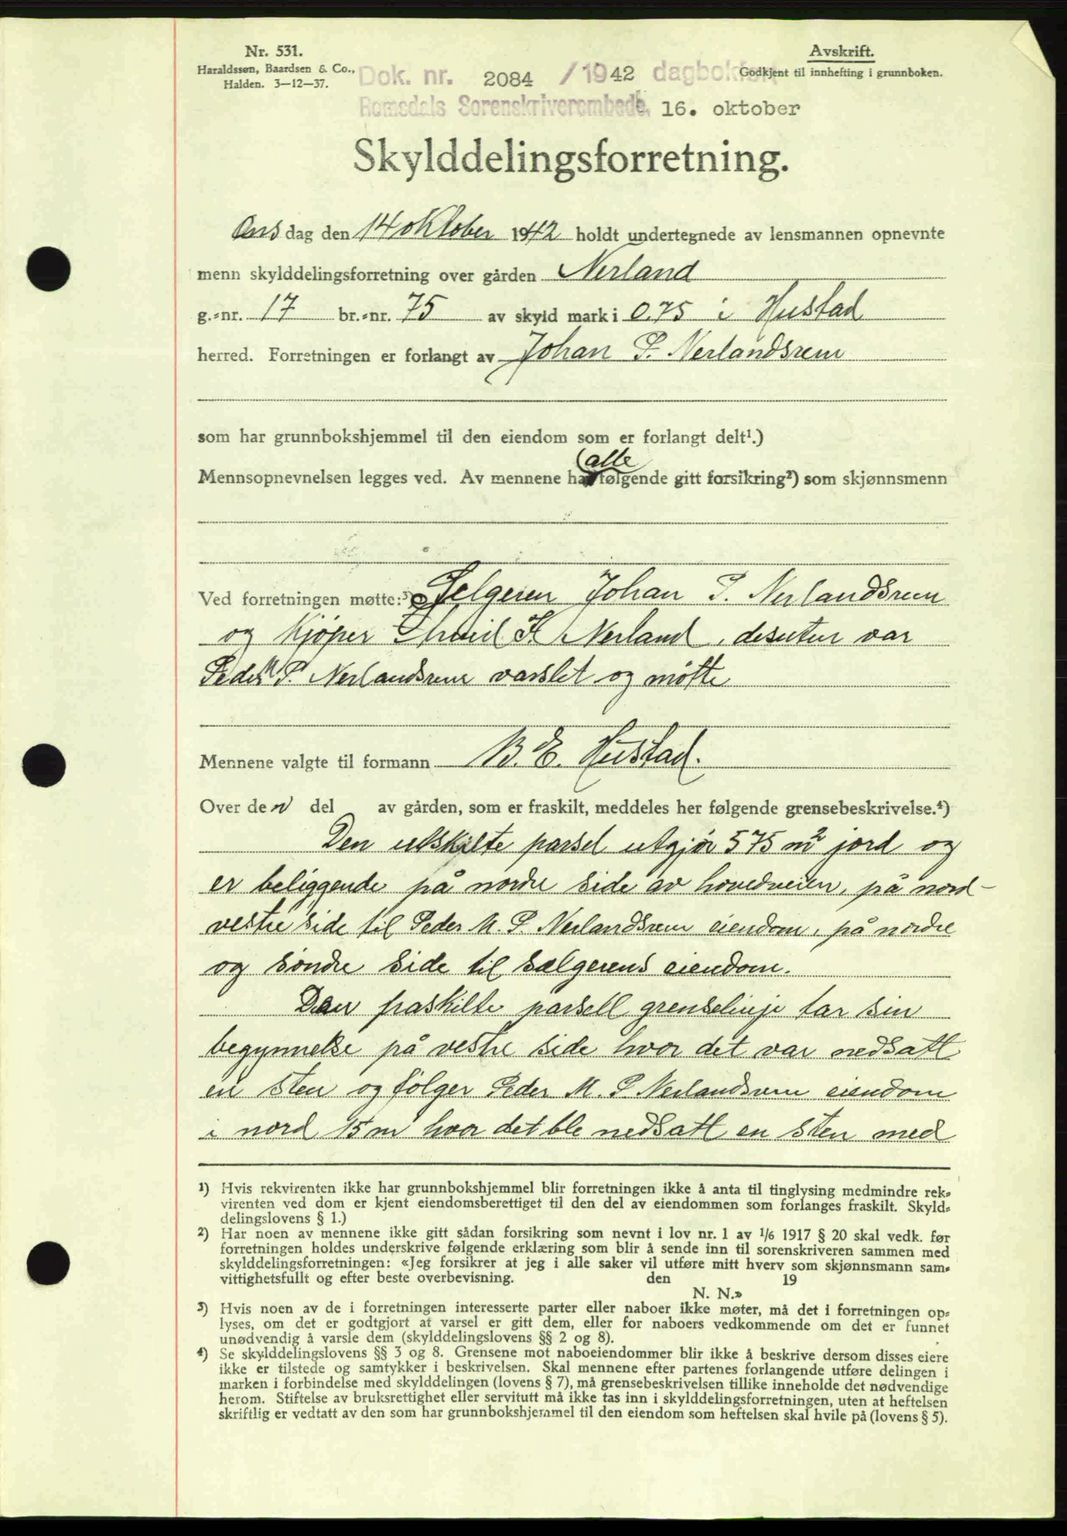 Nr. 531.
Haraldssøn, Baardsen & Co.,
Halden. 3—12—37.
Avskrift.
Godkjent til innhefting i grunnboken.
Dok. nr. 2084 /1942 dagbokført
Romsdals Sorenskriverembede, 16. oktober
Skylddelingsforretning.
Ons dag den 14 oktober 1942 holdt undertegnede av lensmannen opnevnte
menn skylddelingsforretning over gården Nerland
g.-nr. 17 br.-nr. 75 av skyld mark i 0.75 i Hustad
herred. Forretningen er forlangt av Johan P. Nerlandsrem
som har grunnbokshjemmel til den eiendom som er forlangt delt¹.)
alle
Mennsopnevnelsen legges ved. Av mennene har følgende gitt forsikring²) som skjønnsmenn
Ved forretningen møtte:³) Selgeren Johan P. Nerlandsrem
og kjøper K. Nerland, desuten var
Peder M P. Nerlandsrem varslet og møtte
Mennene valgte til formann B. E. Hustad.
Over den del av gården, som er fraskilt, meddeles her følgende grensebeskrivelse.⁴)
Den utskilte parsel utgjør 575 m² jord og
er beliggende på nordre side av hovedveien, på nord-
vestre side til Peder M. P. Nerlandsrem eiendom, på nordre
og søndre side til sælgerens eiendom.
Den fraskilte parsell grenselinje tar sin
begynnelse på vestre side hvor det var nedsatt
en sten og følger Peder M. P Nerlandsrem eiendom
i nord 15 m hvor det ble nedsatt en sten med
¹) Hvis rekvirenten ikke har grunnbokshjemmel blir forretningen ikke å anta til tinglysing medmindre rek-
virenten ved dom er kjent eiendomsberettiget til den del av eiendommen som forlanges fraskilt. Skyld-
delingslovens § 1.)
²) Har noen av mennene ikke gitt sådan forsikring som nevnt i lov nr. 1 av 1/6 1917 § 20 skal vedk. før
forretningen holdes underskrive følgende erklæring som blir å sende inn til sorenskriveren sammen med
skylddelingsforretningen: «Jeg forsikrer at jeg i alle saker vil utføre mitt hverv som skjønnsmann sam-
vittighetsfullt og efter beste overbevisning. den 19
N. N.»
³) Hvis noen av de i forretningen interesserte parter eller naboer ikke møter, må det i forretningen op-
lyses, om det er godtgjort at varsel er gitt dem, eller for naboers vedkommende om det er funnet
unødvendig å varsle dem (skylddelingslovens §§ 2 og 8).
⁴) Se skylddelingslovens §§ 3 og 8. Grensene mot naboeiendommer blir ikke å beskrive dersom disses eiere
ikke er tilstede og samtykker i beskrivelsen. Skal mennene efter partenes forlangende utføre delingen i
marken i forbindelse med skylddelingen (lovens § 7), må grensebeskrivelsen tillike inneholde det nødvendige
herom. Stiftelse av bruksrettighet eller servitutt må ikke tas inn i skylddelingsforretningen, uten at heftelsen
skriftlig er vedtatt av den som har grunnbokshjemmel til den eiendom som heftelsen skal hvile på (lovens § 5).